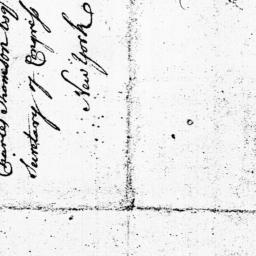 Charles Thomson Esqr
Secretary of Congress
New York